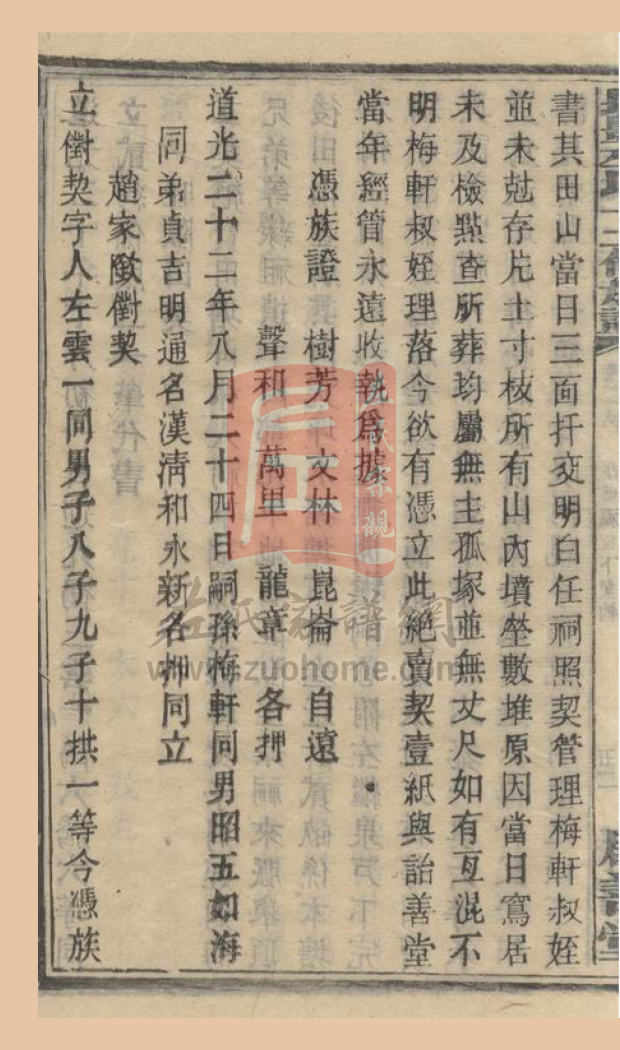 書其田山當日三面扦交明白任祠照契管理梅軒叔姪
並未尅存片土寸枝所有山內墳塋數堆原因當日寫居
未及檢點查所葬均屬無主孤塚並無丈尺如有互混不
明梅軒叔姪理落今欲有憑立此絕賣契壹紙與詒善堂
當年經管永遠收執爲據
憑族證 樹芳 文林 崑崙 自遠
聲和 萬里 龍章 各押
道光二十二年八月二十四日嗣孫梅軒同男昭五如海
同弟貞吉明通名漢淸和永新名押同立
趙家墩儅契
立儅契字人左雲一同男子八子九子十拱一等今憑族
左氏家譜網
www.zuohome.com